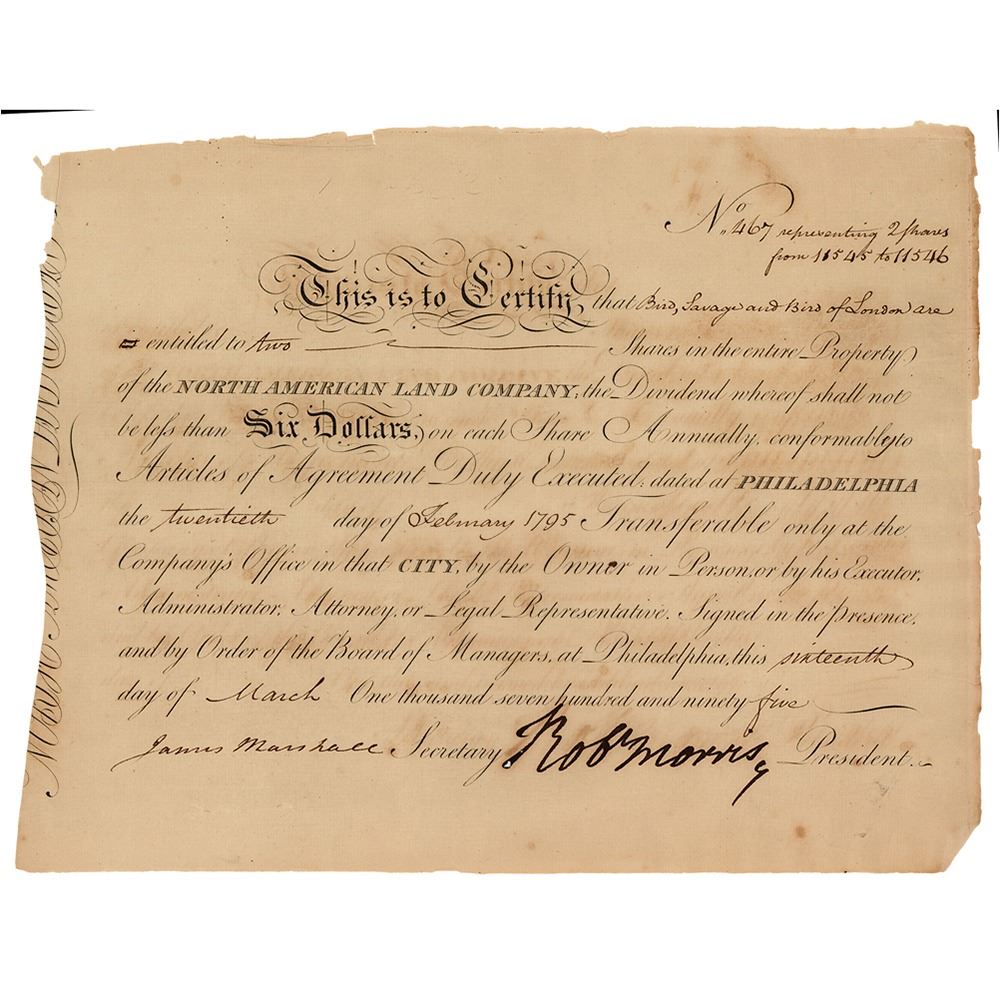 No. 467 representing 2 shares
from 11545 to 11546
This is to Certify, that Bird, Savage and Bird of London are
entitled to two Shares in the entire Property
of the NORTH AMERICAN LAND COMPANY; the Dividend whereof shall not
be less than Six Dollars, on each Share Annually, conformably to
Articles of Agreement Duly Executed; dated at PHILADELPHIA
the twentieth day of February 1795 Transferable only at the
Company's Office in that CITY, by the Owner in Person, or by his Executor,
Administrator, Attorney, or Legal Representative. Signed in the presence,
and by Order of the Board of Managers, at Philadelphia, this sixteenth
day of March One thousand seven hundred and ninety five
James Marshall Secretary Robt Morris, President.